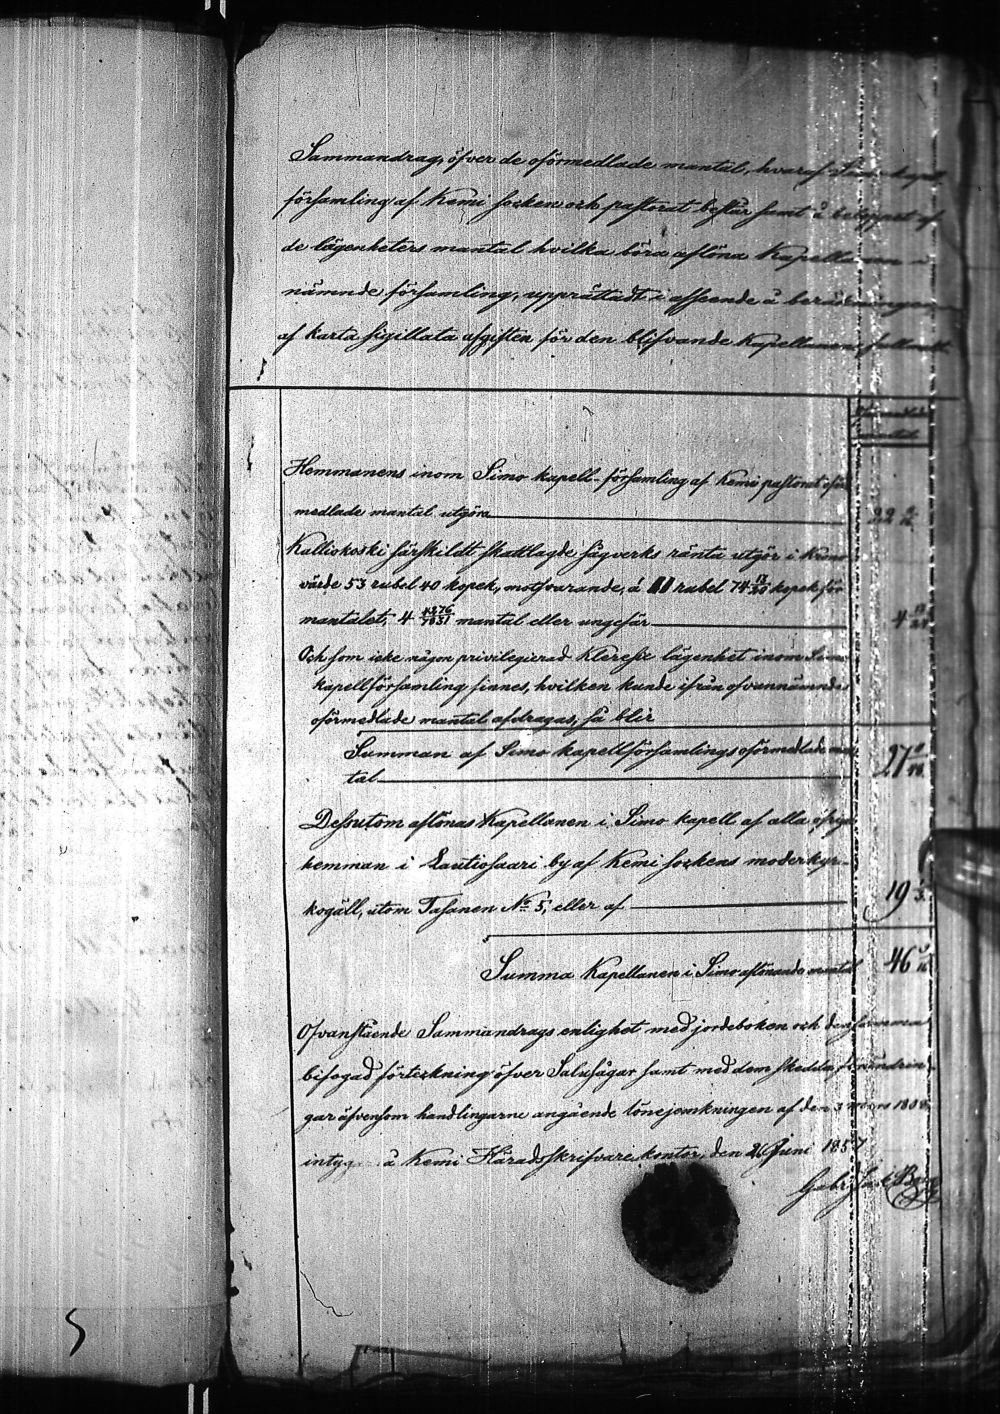 Sammandrag, öfver de oförmedlade mantal, hvaraf Simo kapell
församling af Kemi socken och pastorat består samt å beloppet af
de lägenheters mantal hvilka böra aflöna Kapellanen i
nämnde församling, upprättadt i afseende å beräkningen
af karta sigillata afgiften för den blifvande Kapellanens fullmakt.
Oförmedlade
mantal
Hemmanens inom Simo kapell-församling af Kemi pastorat oför
medlade mantal utgöra 22
Kalliokoski särskildt skattlagde sågverks ränta utgör i
värde 53 rubel 40 kopek, motsvarande, á 11 rubel 74 17/20 kopek för
mantalet, 4 mantal eller ungefär 4
Och som icke någon privilegierad Kleresie lägenhet inom Simo
kapellförsamling finnes, hvilken kunde ifrån ofvannämnde
oförmedlade mantal afdragas, så blir
Summan af Simo kapellförsamlings oförmedlade man
tal 27
Dessutom aflönas Kapellanen i Simo kapell af alla öfriga
hemman i Lautiosaari by af Kemi sockens moderkyr-
kogäll, utom Tasanen No 5, eller af 19
Summa Kapellanen i Simo aflönande mantal 46
Ofvanstående Sammandrags enlighet med jordeboken och den
bifogad förteckning öfver Salusågar samt med dem skedda förändrin-
gar äfvensom handlingarne angående lönejemkningen af den 3 mars 1808,
intyg å Kemi Häradsskrifvare kontor, den 26 Juni 1857
5